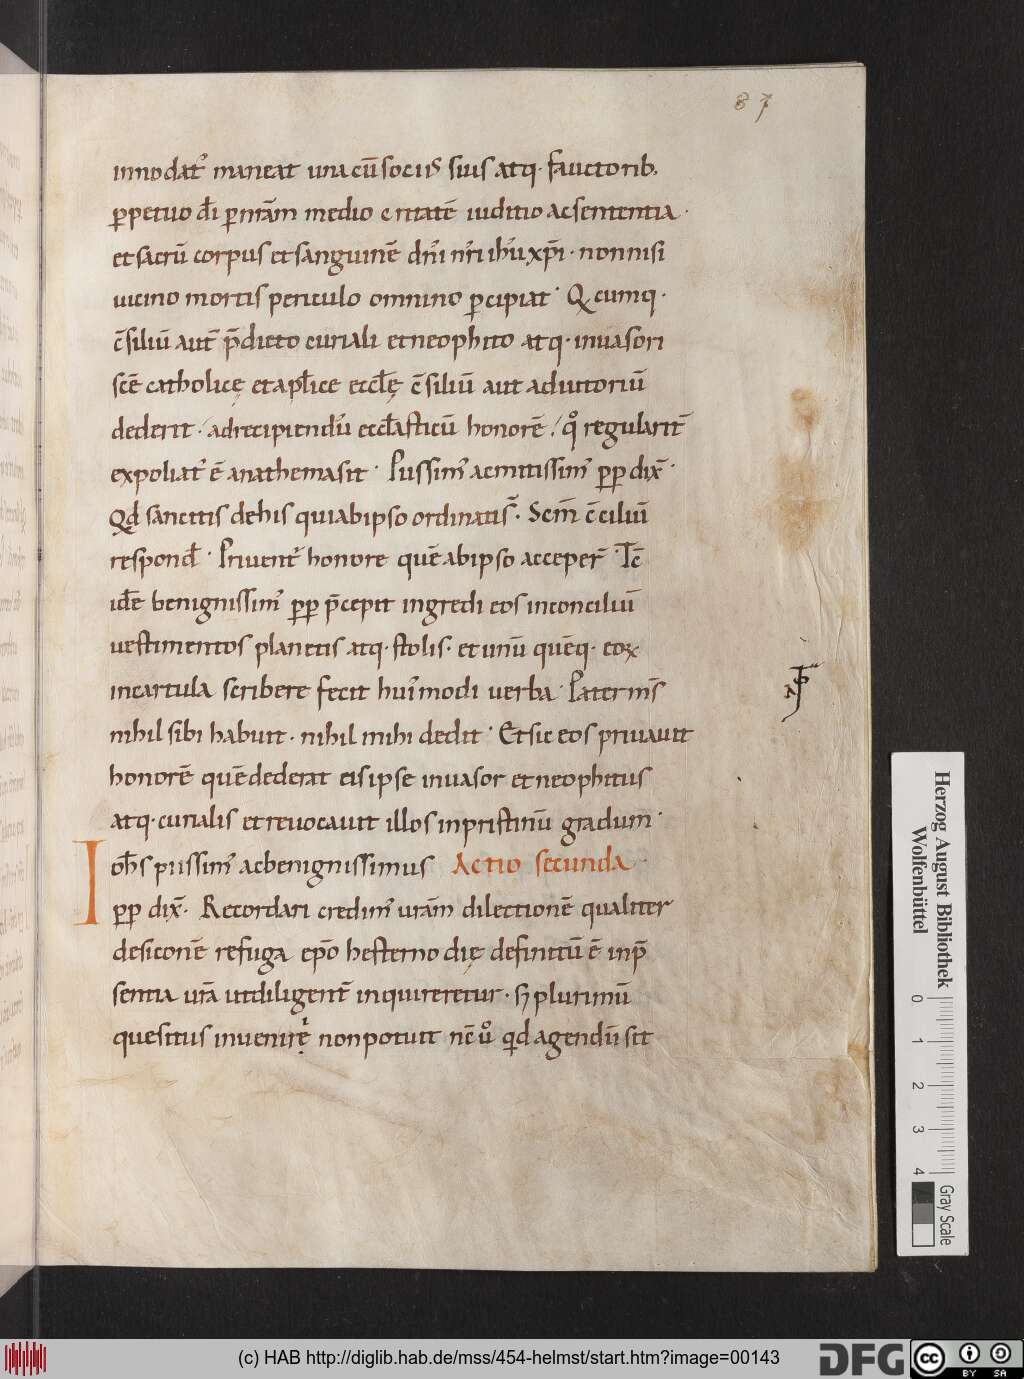 87
innodatˀ maneat una cū sociis suis atq· fauctorib;
ꝑpetuo dī ꝑ nrām medio critatē iuditio ac sententia·
et sacrū corpus et sanguinē dn̄i nr̄i ih̄u xp̄i· non nisi
uicino mortis periculo omnino ꝑcipiat· Q cumq·
c̄siliū aut̄ p̄dicto curiali et neophito atq· inuasori
scē catholicę et apl̄ice eccl̄ę c̄siliū aut adiutoriū
dederit· ad recipiendū eccl̄asticū honorē· qͦ regularit̄
expoliatˀ ē anathema sit· Piissimˀ ac mitissimˀ pp dix̄·
Qd sancitis de his qui ab ipso ordinatis̄· Scm̄ c̄ciliū
respond̄· Priuentˀ honore quē ab ipso acceper̄· Tc̄
idē benignissimˀ pp p̄cepit ingredi eos in conciliū
uestimentos planetis atq· stolis· et unū quēq· eoꝝ
in cartula scribere fecit huiˀmodi uerba· Pater ms̄
nihil sibi habuit· nihil mihi dedit· Et sic eos priuauit
honorē quē dederat eis ipse inuasor et neophitus
atq· curialis et reuocauit illos in pristinū gradum·
Ioh̄s piissimˀ ac benignissimus Actio secunda·
pp dix̄· Recordari credimˀ urām dilectionē qualiter
de siconē refuga ep̄o hesterno dię definitū ē in p̄
sentia urā ut diligent̄ inquireretur· sꝫ plurimū
quesitus inuenirę non potuit nc̄ uͦ qd agendū sit
Herzog August Bibliothek
Wolfenbüttel
0 1 2 3 4
Gray Scale
(c) HAB http://diglib.hab.de/mss/454-helmst/start.htm?image=00143
DFG
cc BY SA